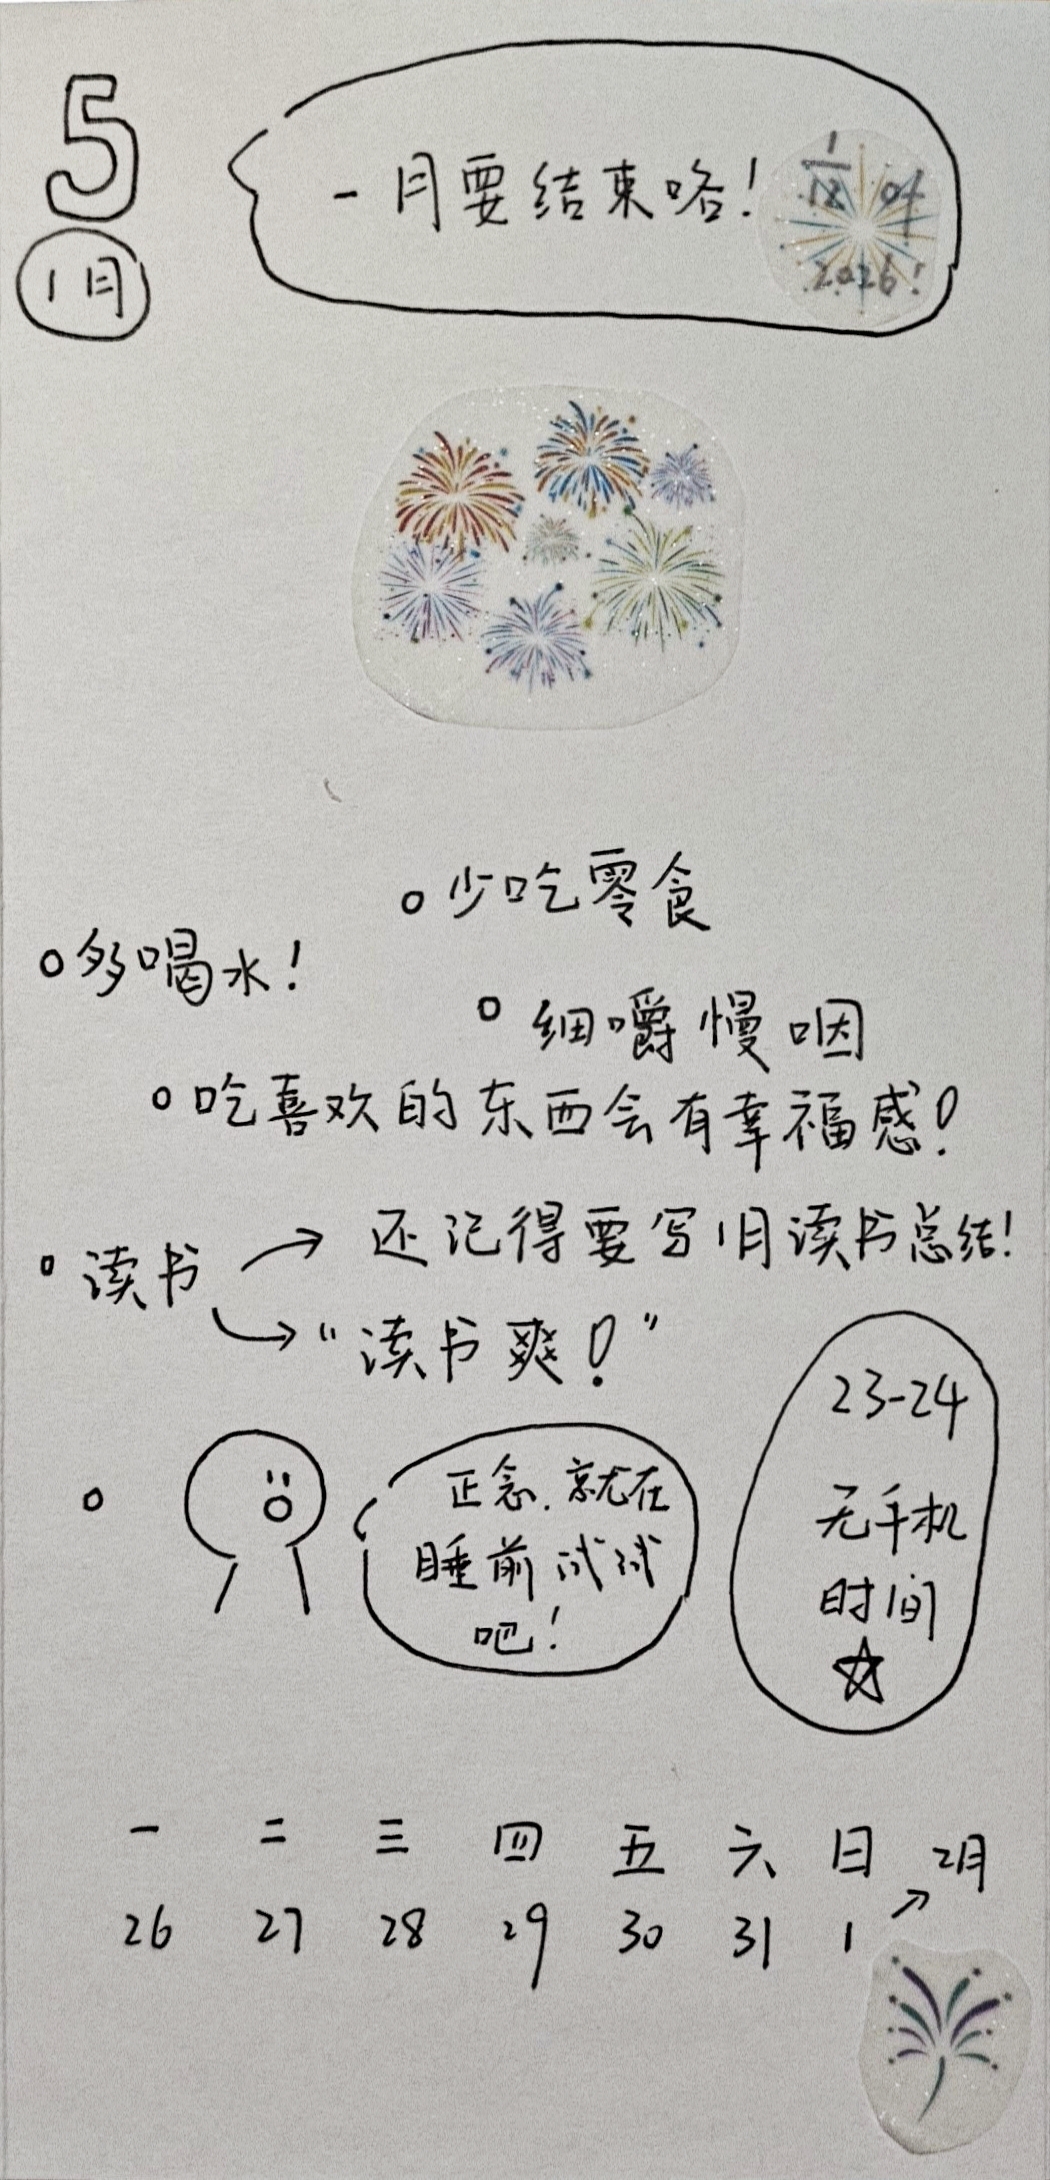 5
1月
一月要结束咯!
1/12 of
2026!
少吃零食
多喝水!
细嚼慢咽
吃喜欢的东西会有幸福感!
读书 → 还记得要写1月读书总结!
→ "读书爽!"
23-24
无手机
时间
☆
正念.就在
睡前试试
吧!
一 二 三 四 五 六 日 2月
26 27 28 29 30 31 1